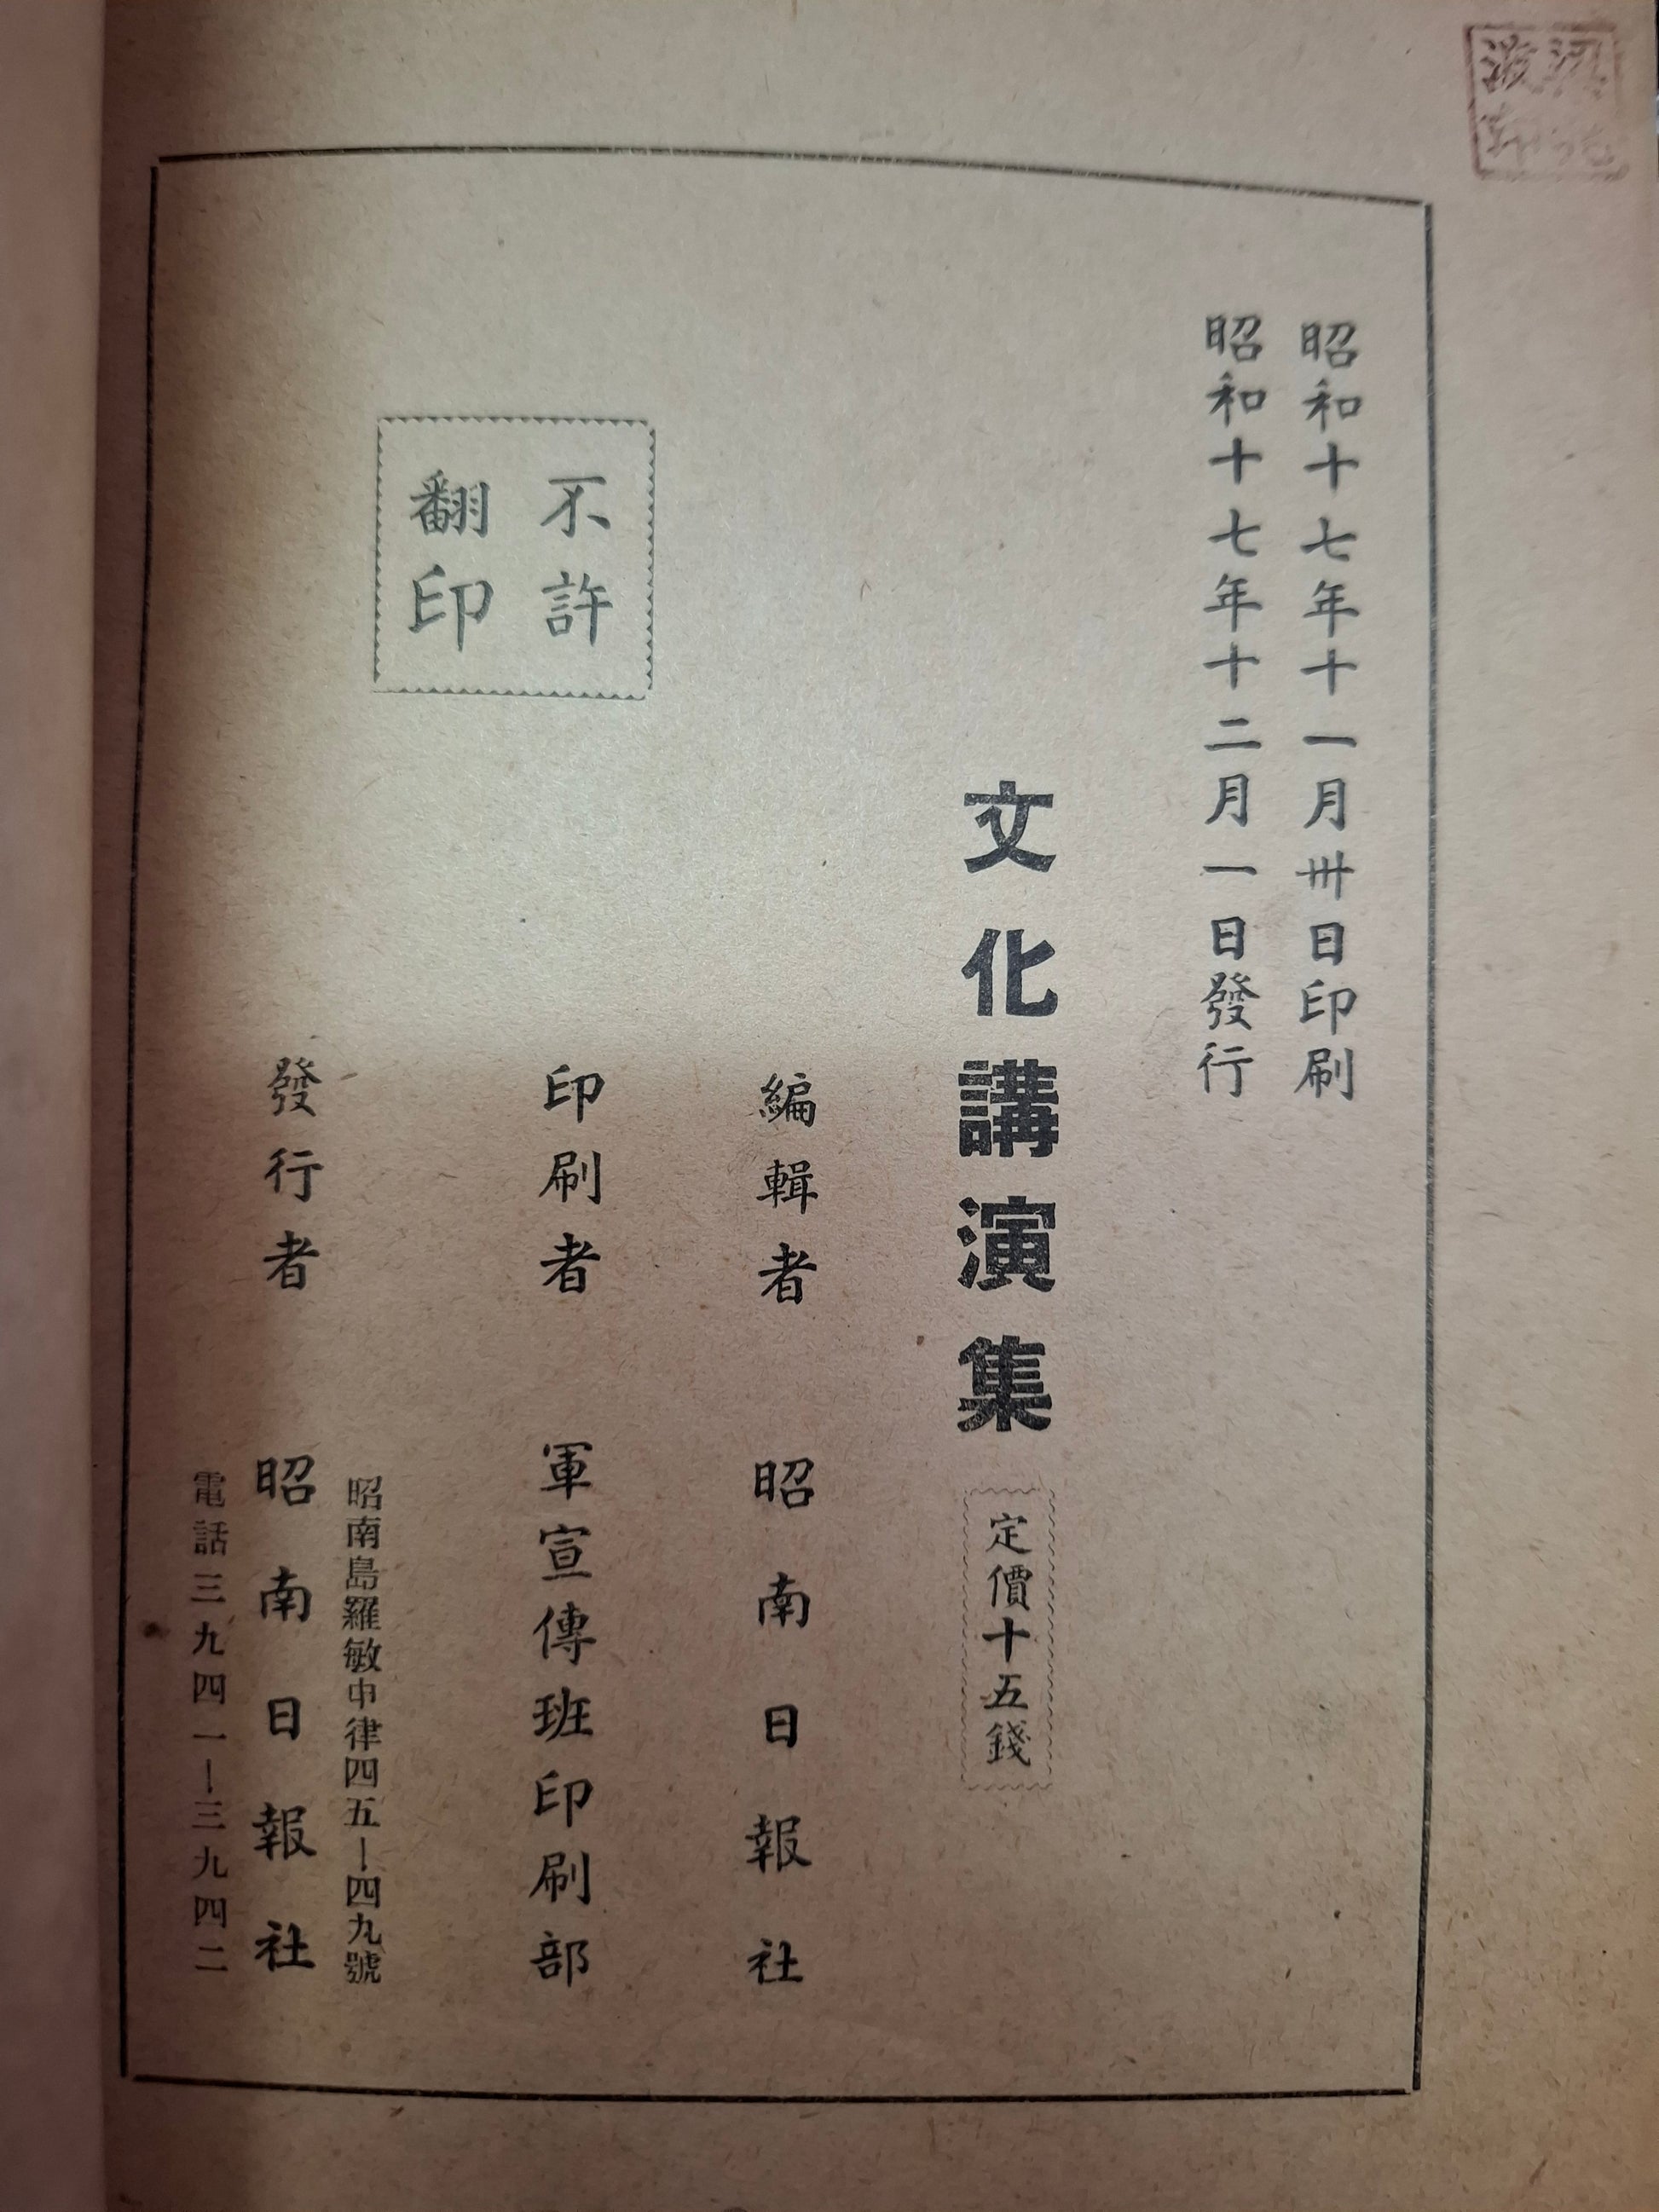 昭和十七年十一月卅日印刷
昭和十七年十二月一日發行
文化講演集
定價十五錢
編輯者 昭南日報社
印刷者 軍宣傳班印刷部
不許
翻印
昭南島羅敏申律四五—四九號
發行者 昭南日報社
電話三九四一—三九四二